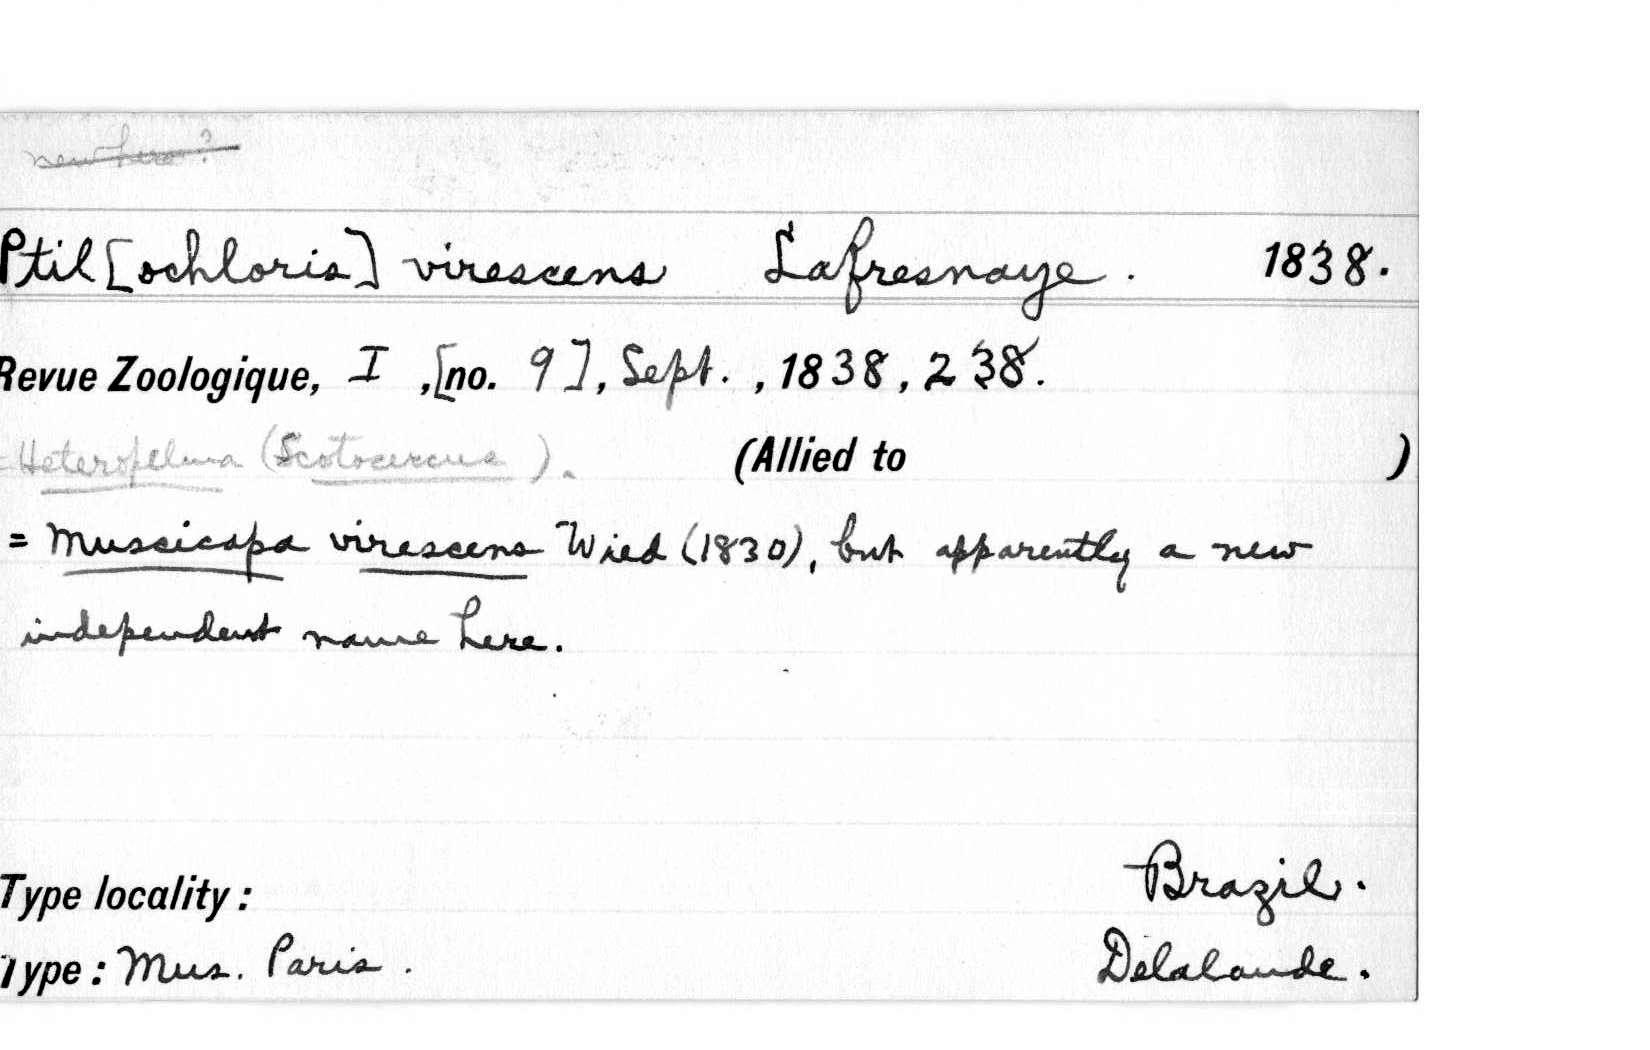 new here?
Ptil[ochloris] virescens Lafresnaye. 1838.
Revue Zoologique, I, [no. 9], Sept., 1838, 238.
= Heteropelma (Scotocercus).
(Allied to )
= Muscicapa virescens Wied (1830), but apparently a new
independent name here.
Type locality: Brazil.
Type: Mus. Paris. Delalande.